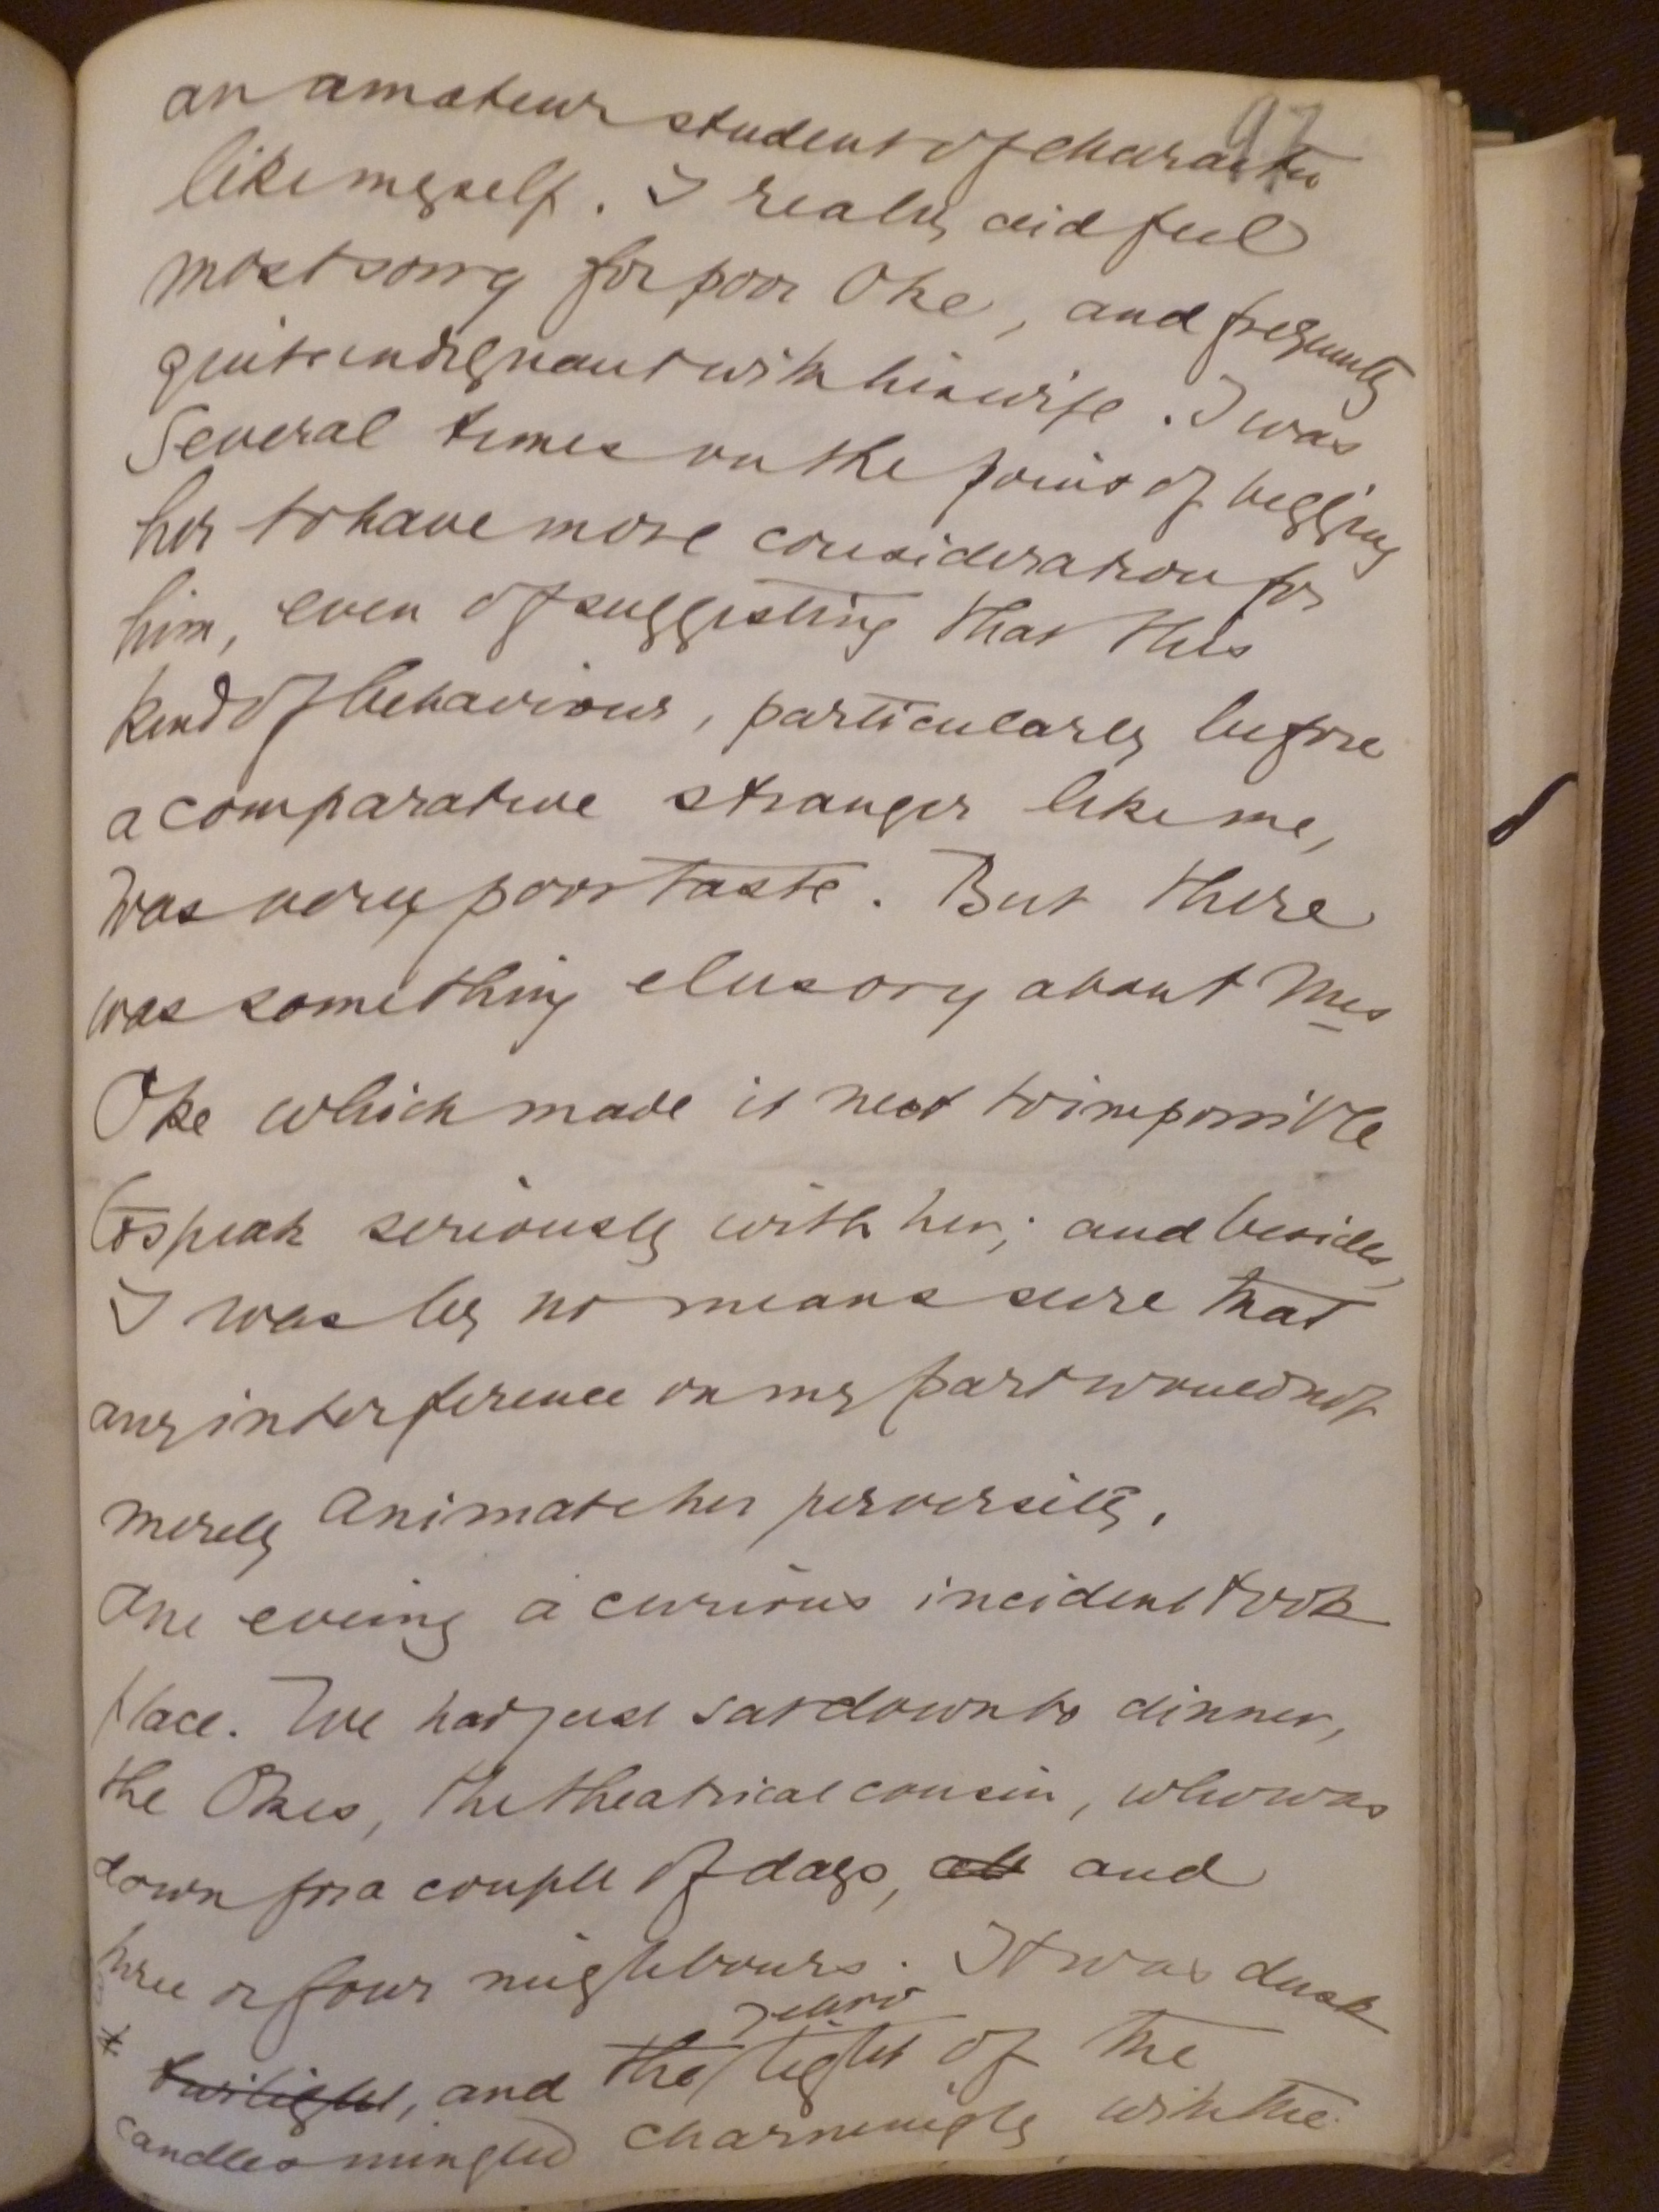 97
an amateur student of character
like myself. I really did feel
most sorry for poor Oke, and frequently
quite indignant with his wife. I was
several times on the point of begging
her to have more consideration for
him, even of suggesting that this
kind of behaviour, particularly before
a comparative stranger like me,
was very poor taste. But there
was something elusory about Mrs
Oke which made it next to impossible
to speak seriously with her; and besides,
I was by no means sure that
any interference on my part would not
merely animate her perversity.
One evening a curious incident took
place. We had just sat down to dinner,
the Okes, the theatrical cousin, who was
down for a couple of days, and
three or four neighbours. It was dusk
yellow
twilight, and the light of the
candles mingled charmingly with the